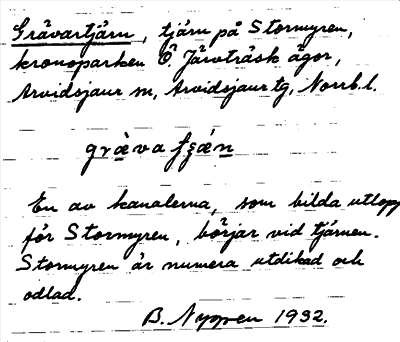 Gråvartjärn, tjärn på Stormyren,
kronoparken Ö. Järvträsk ägor,
Arvidsjaur sn, Arvidsjaur tg, Norrb. l.
En av kanalerna, som bilda utlopp
för Stormyren, börjar vid tjärnen.
Stormyren är numera utdikad och
odlad.
B. Nygren 1932.